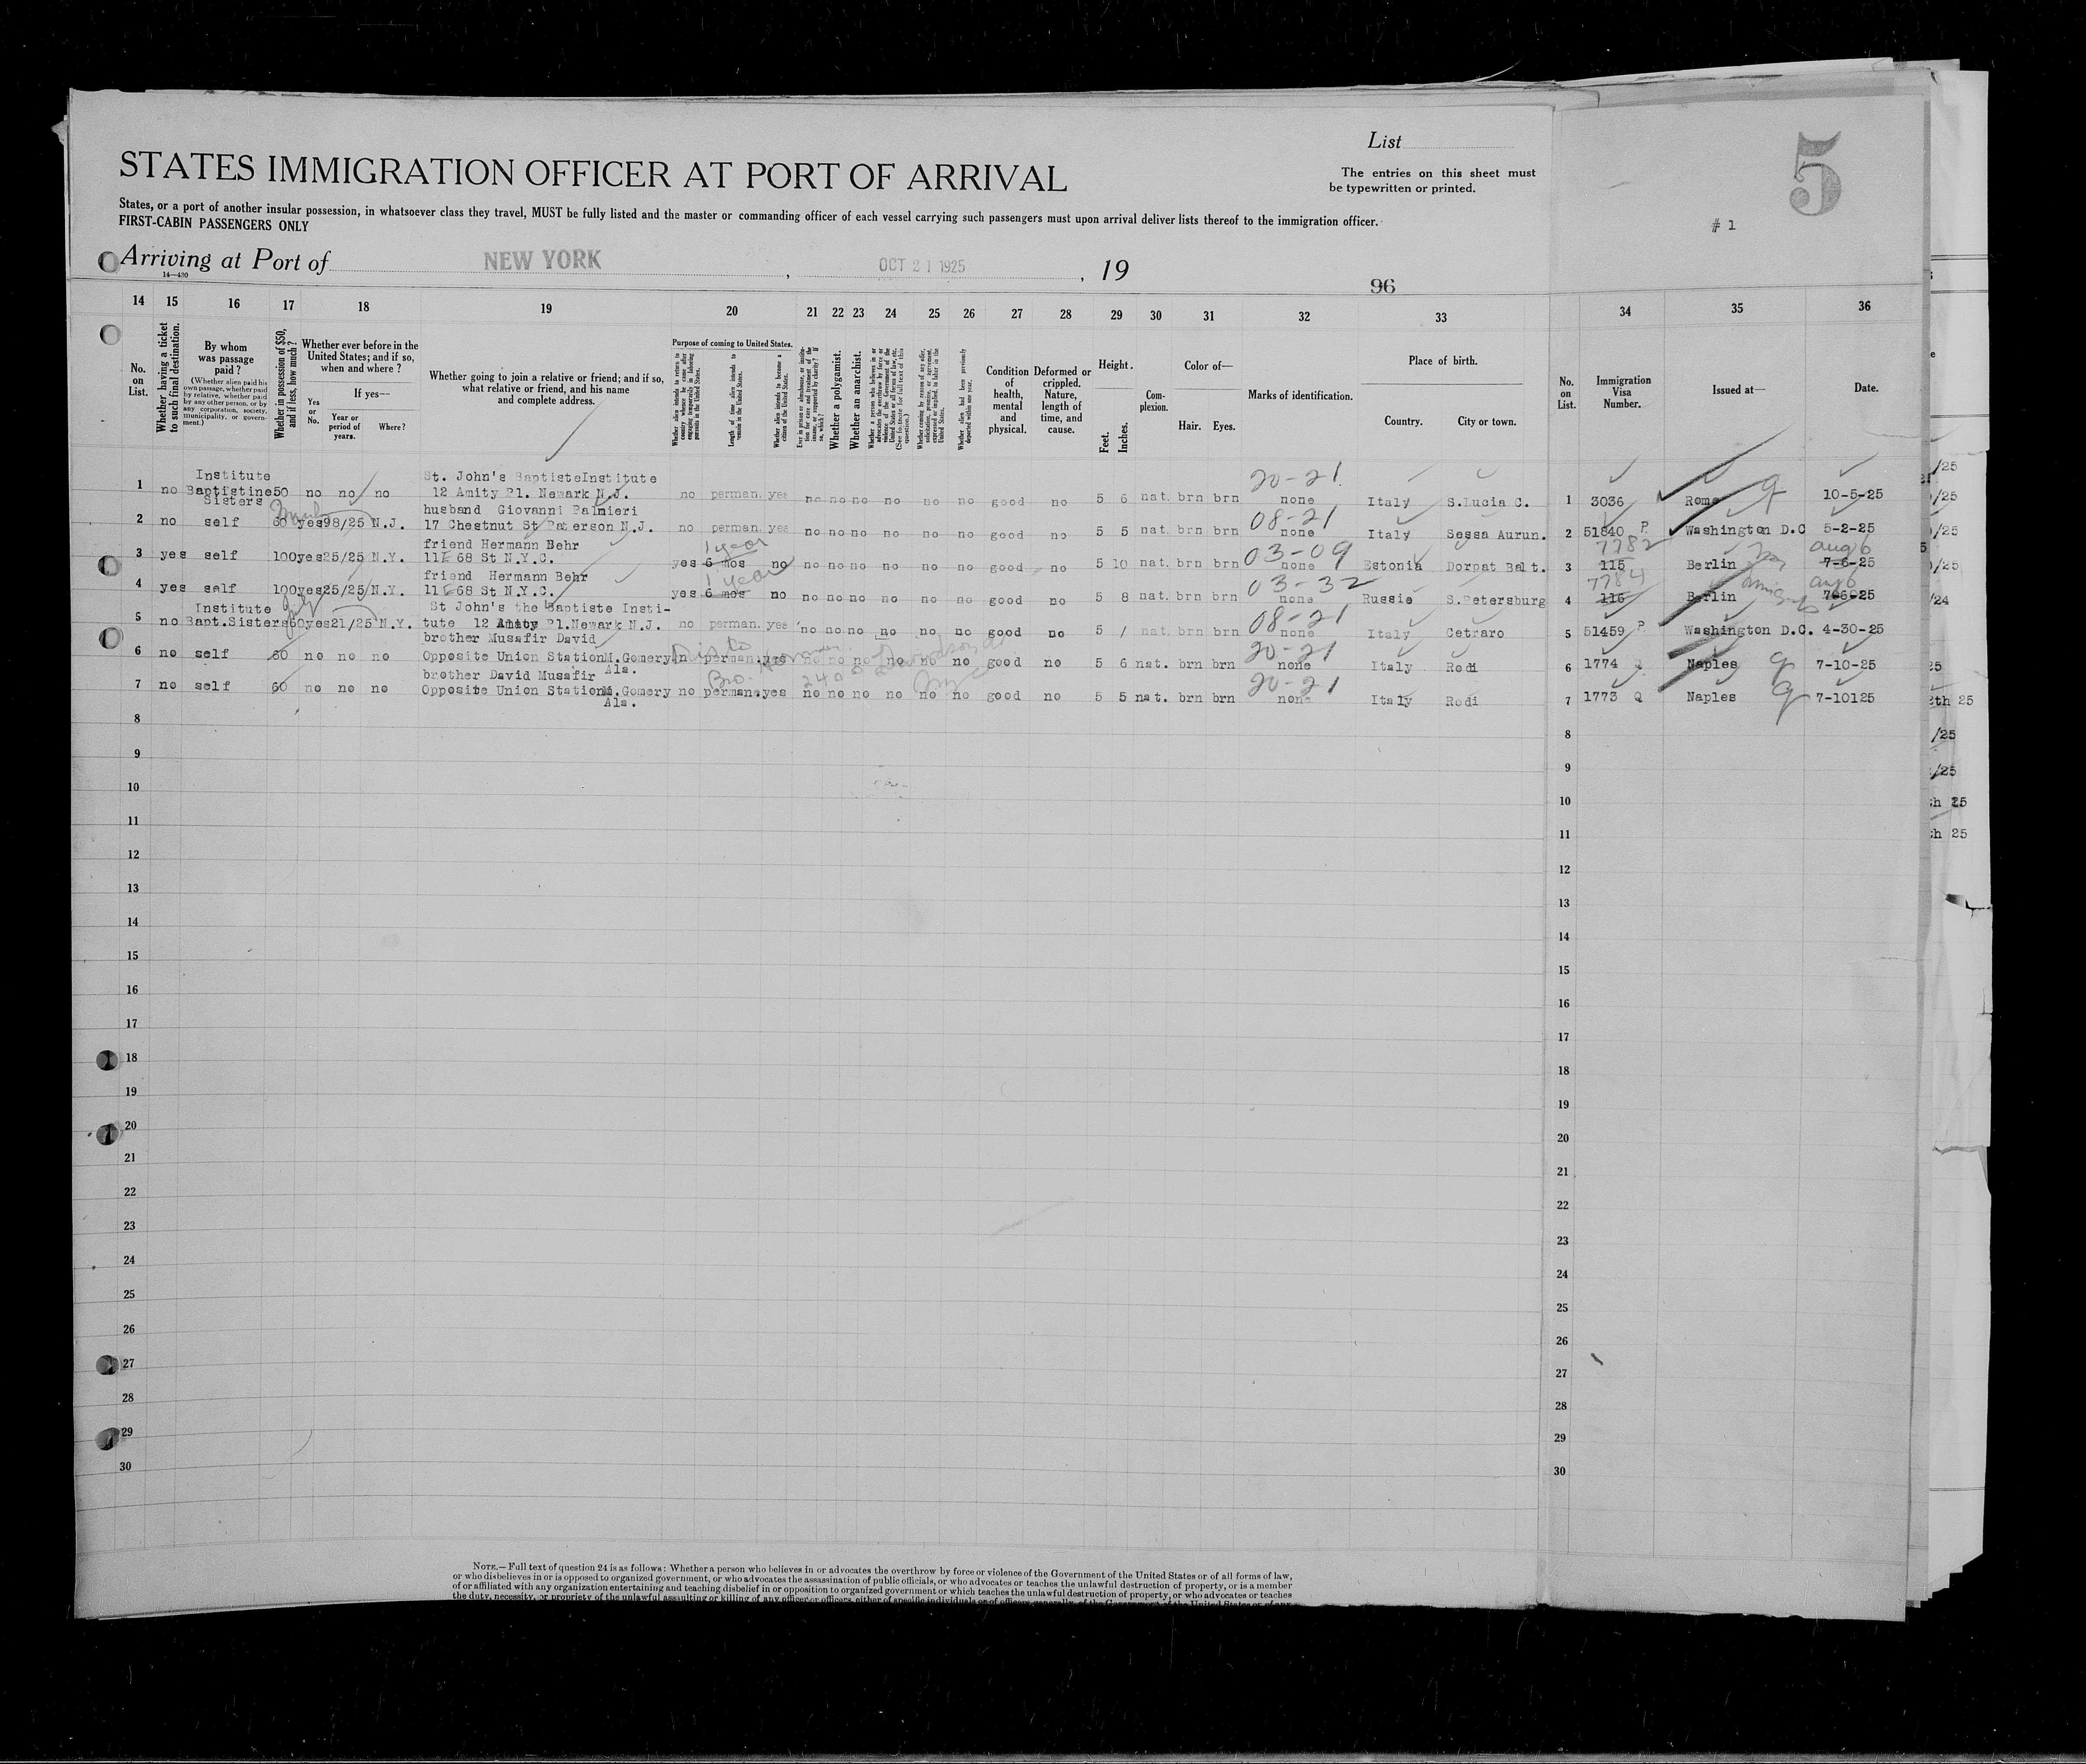 List
STATES IMMIGRATION OFFICER AT PORT OF ARRIVAL
The entries on this sheet must
be typewritten or printed.
5
# 1
States, or a port of another insular possession, in whatsoever class they travel, MUST be fully listed and the master or commanding officer of each vessel carrying such passengers must upon arrival deliver lists thereof to the immigration officer.
FIRST-CABIN PASSENGERS ONLY
Arriving at Port of NEW YORK , OCT 21 1925 , 19
14—430
96
14 15 16 17 18 19 20 21 22 23 24 25 26 27 28 29 30 31 32 33 34 35 36
No. on List.
Whether having a ticket to such final destination.
By whom was passage paid?
(Whether alien paid his own passage, whether paid by relative, whether paid by any other person, or by any corporation, society, municipality, or government.)
Whether in possession of $50, and if less, how much?
Whether ever before in the United States; and if so, when and where?
If yes—
Yes or No.
Year or period of years.
Where?
Whether going to join a relative or friend; and if so, what relative or friend, and his name and complete address.
Purpose of coming to United States.
Length of time alien intends to remain in the United States.
Whether alien intends to become a citizen of the United States.
Whether a polygamist.
Whether an anarchist.
Condition of health, mental and physical.
Deformed or crippled. Nature, length of time, and cause.
Height.
Feet. Inches.
Com-plexion.
Color of—
Hair. Eyes.
Marks of identification.
Place of birth.
Country. City or town.
No. on List.
Immigration Visa Number.
Issued at—
Date.
Institute St. John's BaptisteInstitute 20-21
1 no Baptistine 50 no no no 12 Amity Pl. Newark N.J. no perman. yes no no no no no no good no 5 6 nat. brn brn none Italy S.Lucia C. 1 3036 Rome 10-5-25
Sisters husband Giovanni Palmieri 08-21
2 no self 60 yes98/25 N.J. 17 Chestnut St Paterson N.J. no perman. yes no no no no no no good no 5 5 nat. brn brn none Italy Sessa Aurun. 2 51840 P Washington D.C 5-2-25
friend Hermann Behr 1 year 03-09 7782 aug 6
3 yes self 100yes25/25 N.Y. 11E 68 St N.Y.C. yes 6 mos no no no no no no no good no 5 10 nat. brn brn none Estonia Dorpat Balt. 3 115 Berlin 7-6-25
friend Hermann Behr 1 year 03-32 7784 aug 6
4 yes self 100yes25/25/N.Y. 11E 68 St N.Y.C. yes 6 mos no no no no no no no good no 5 8 nat. brn brn none Russie S.Petersburg 4 116 Berlin 7-6-25
Institute St John's the Baptiste Insti- 08-21
5 no Bapt.Sisters60yes21/25 N.Y. tute 12 Amity Pl.Newark N.J. no perman. yes no no no no no no good no 5 / nat. brn brn none Italy Cetraro 5 51459 P Washington D.C. 4-30-25
brother Musafir David 20-21
6 no self 60 no no no Opposite Union StationM.Gomery perman.yes no no no no no no good no 5 6 nat. brn brn none Italy Rodi 6 1774 Q Naples 7-10-25
Ala.
brother David Musafir Bro. 20-21
7 no self 60 no no no Opposite Union StationM.Gomery no permane,yes no no no no no no good no 5 5 nat. brn brn none Italy Rodi 7 1773 Q Naples 7-10125
Ala.
8 8
9 9
10 10
11 11
12 12
13 13
14 14
15 15
16 16
17 17
18 18
19 19
20 20
21 21
22 22
23 23
24 24
25 25
26 26
27 27
28 28
29 29
30 30
NOTE.—Full text of question 24 is as follows: Whether a person who believes in or advocates the overthrow by force or violence of the Government of the United States or of all forms of law,
or who disbelieves in or is opposed to organized government, or who advocates the assassination of public officials, or who advocates or teaches the unlawful destruction of property, or is a member
of or affiliated with any organization entertaining and teaching disbelief in or opposition to organized government or which teaches the unlawful destruction of property, or who advocates or teaches
the duty, necessity, or propriety of the unlawful assaulting or killing of any officer or officers, either of specific individuals or of officers generally, of the Government of the United States or of any